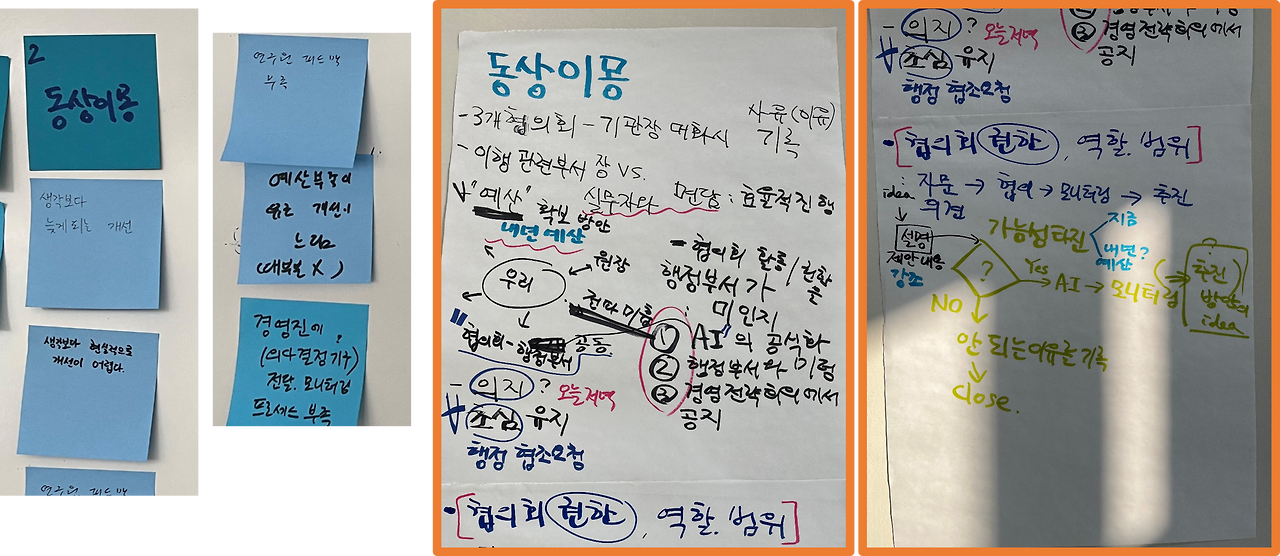 2
동상이몽
생각보다
늦게 되는 개선
생각보다 현실적으로
개선이 어렵다.
연구원 피드백
연구원 피드백
부족
예산부족이
유로 개선이
느림
(대부분 X)
경영진에
(의사결정기구)
전달, 모니터링
프로세스 부족
동상이몽
- 3개협의회 - 기관장 대화시
사유(이유)
기록
- 이행 관련부서 장 vs.
실무자와 면담 : 효율적진행
"예산" 확보 방안
내년 예산
우리
원장
- 협의회 활동/현황
을
행정부서가
: 미인지
전파 미흡
협의회 - 행정부서 공동
① AI의 공식화
② 행정부서와 미팅
③ 경영전략회의에서
공지
- 의지? 오늘저녁
초심 유지
행정 협조요청
- [협의회 권한, 역할. 범위]
- 의지? 오늘저녁
③ 경영전략회의에서
공지
초심 유지
행정 협조요청
- [협의회 권한, 역할. 범위]
: 자문 → 협의 → 모니터링 → 추진
idea 의견
설명
제안내용
강조
가능성타진
지금
내년?
예산
?
Yes
→ AI → 모니터링
(추진)
방안의
idea
NO
안 되는 이유를 기록
close.